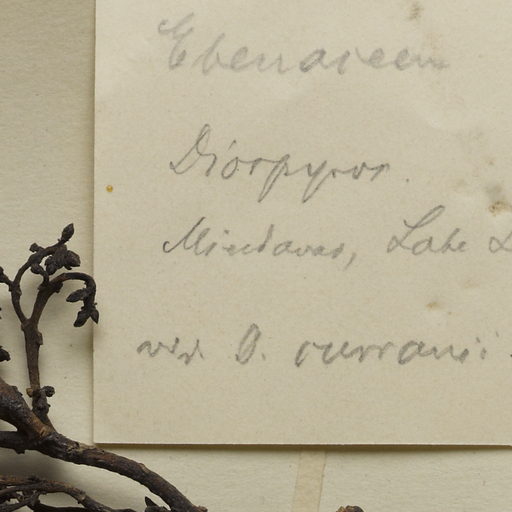 Ebenaceen
Diospyros.
Mindanao, Lake L
D. curranii